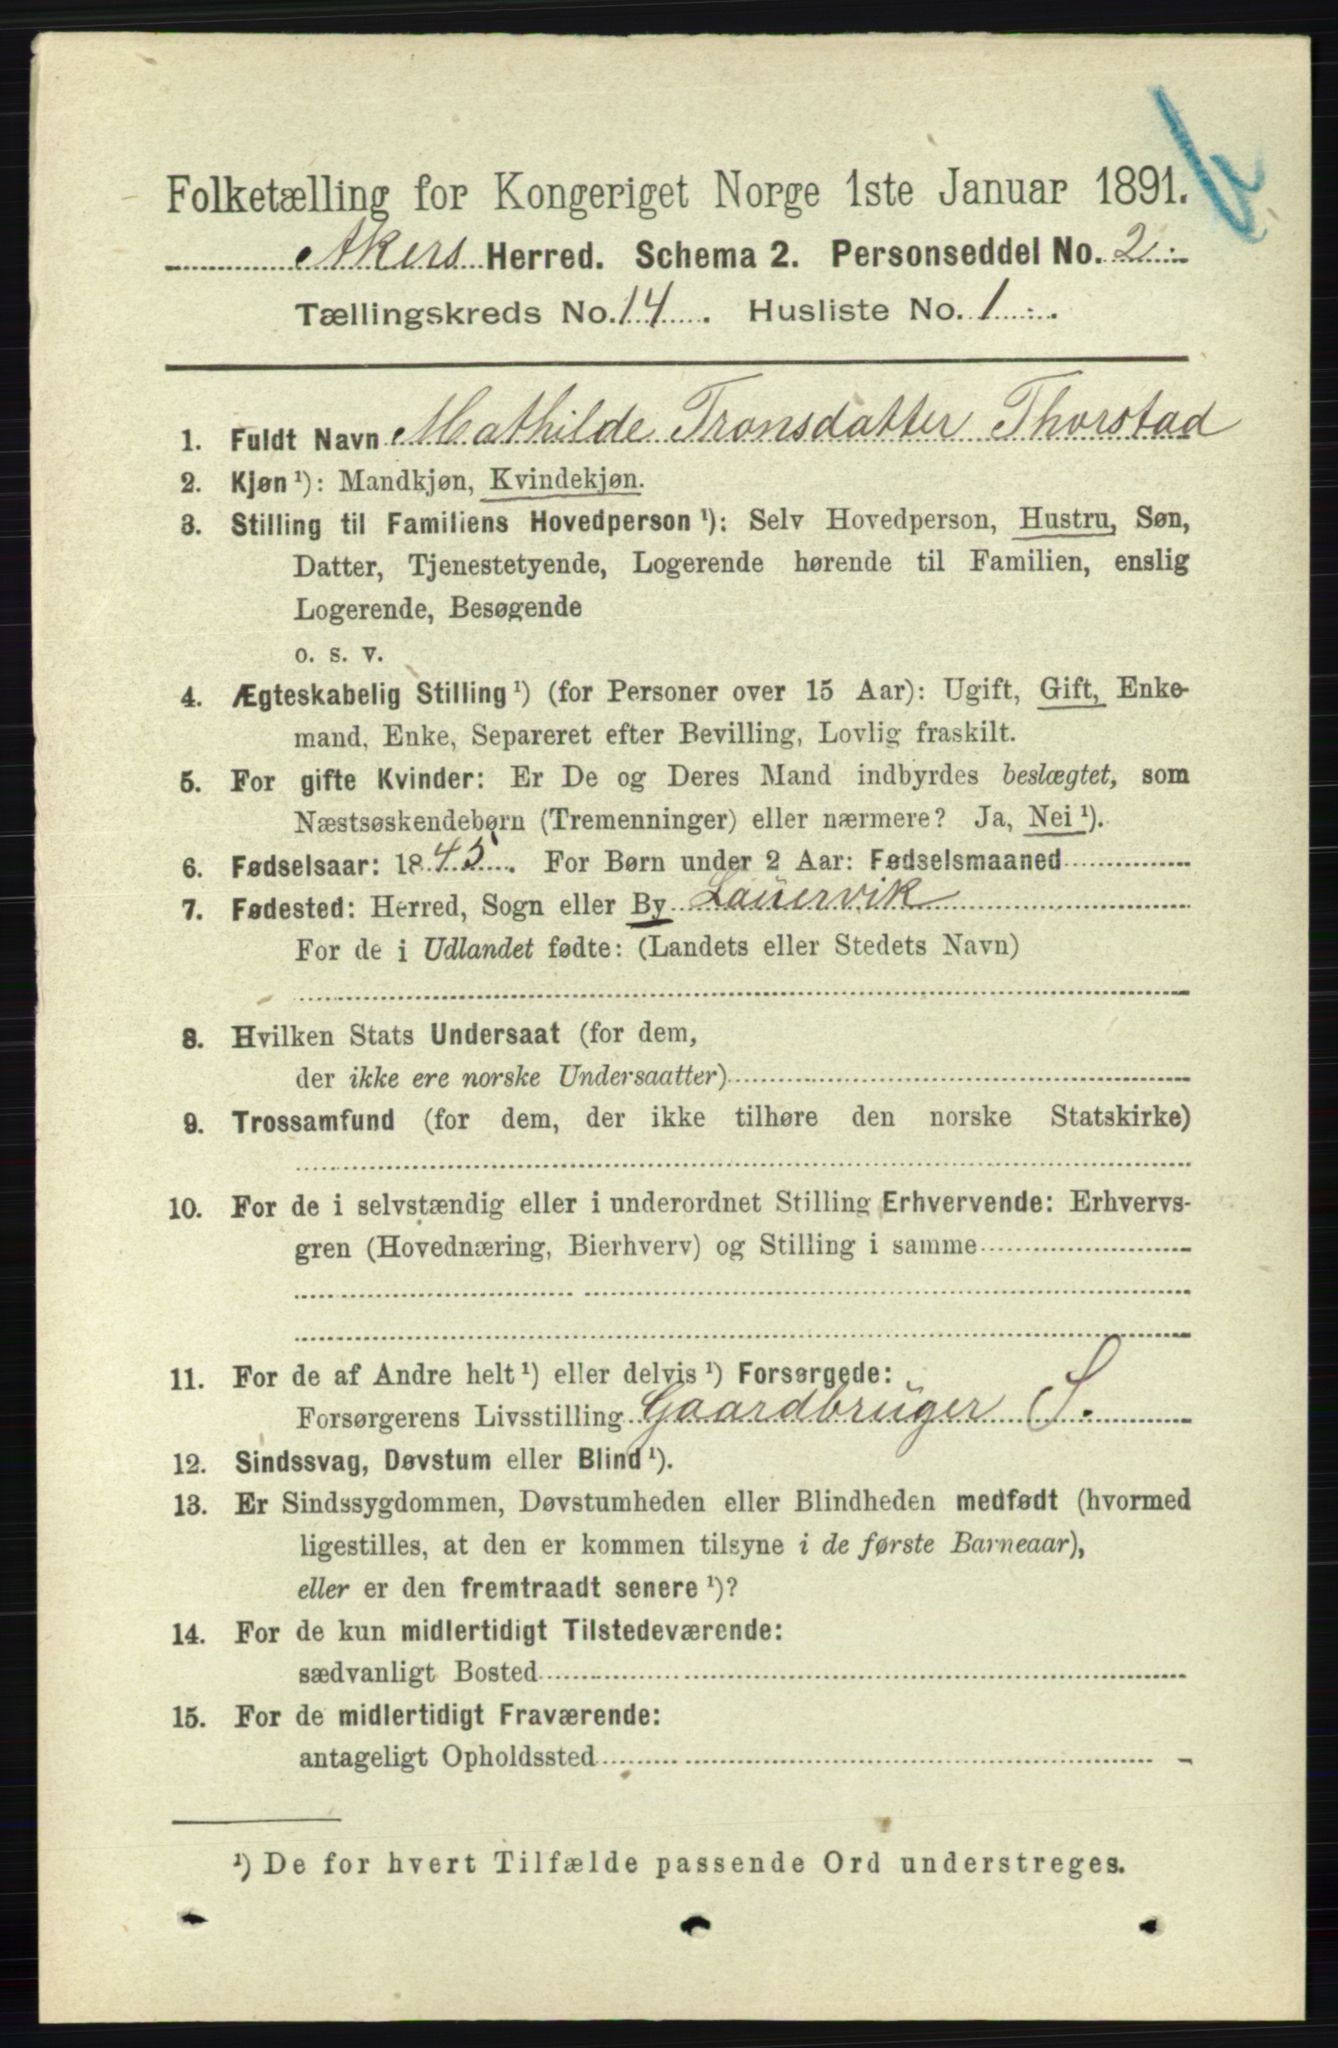 Folketælling for Kongeriget Norge 1ste Januar 1891.
Akers Herred. Schema 2. Personseddel No. 2
Tællingskreds No. 14. Husliste No. 1.
1. Fuldt Navn Mathilde Tronsdatter Thorstad
2. Kjøn ¹): Mandkjøn, Kvindekjøn.
3. Stilling til Familiens Hovedperson ¹): Selv Hovedperson, Hustru, Søn,
Datter, Tjenestetyende, Logerende hørende til Familien, enslig
Logerende, Besøgende
o. s. v.
4. Ægteskabelig Stilling ¹) (for Personer over 15 Aar): Ugift, Gift, Enke-
mand, Enke, Separeret efter Bevilling, Lovlig fraskilt.
5. For gifte Kvinder: Er De og Deres Mand indbyrdes beslægtet, som
Næstsøskendebørn (Tremenninger) eller nærmere? Ja, Nei ¹).
6. Fødselsaar: 1845. For Børn under 2 Aar: Fødselsmaaned
7. Fødested: Herred, Sogn eller By Laurvik
For de i Udlandet fødte: (Landets eller Stedets Navn)
8. Hvilken Stats Undersaat (for dem,
der ikke ere norske Undersaatter)
9. Trossamfund (for dem, der ikke tilhøre den norske Statskirke)
10. For de i selvstændig eller i underordnet Stilling Erhvervende: Erhvervs-
gren (Hovednæring, Bierhverv) og Stilling i samme
11. For de af Andre helt ¹) eller delvis ¹) Forsørgede:
Forsørgerens Livsstilling Gaardbruger S.
12. Sindssvag, Døvstum eller Blind ¹).
13. Er Sindssygdommen, Døvstumheden eller Blindheden medfødt (hvormed
ligestilles, at den er kommen tilsyne i de første Barneaar),
eller er den fremtraadt senere ¹)?
14. For de kun midlertidigt Tilstedeværende:
sædvanligt Bosted
15. For de midlertidigt Fraværende:
antageligt Opholdssted
¹) De for hvert Tilfælde passende Ord understreges.